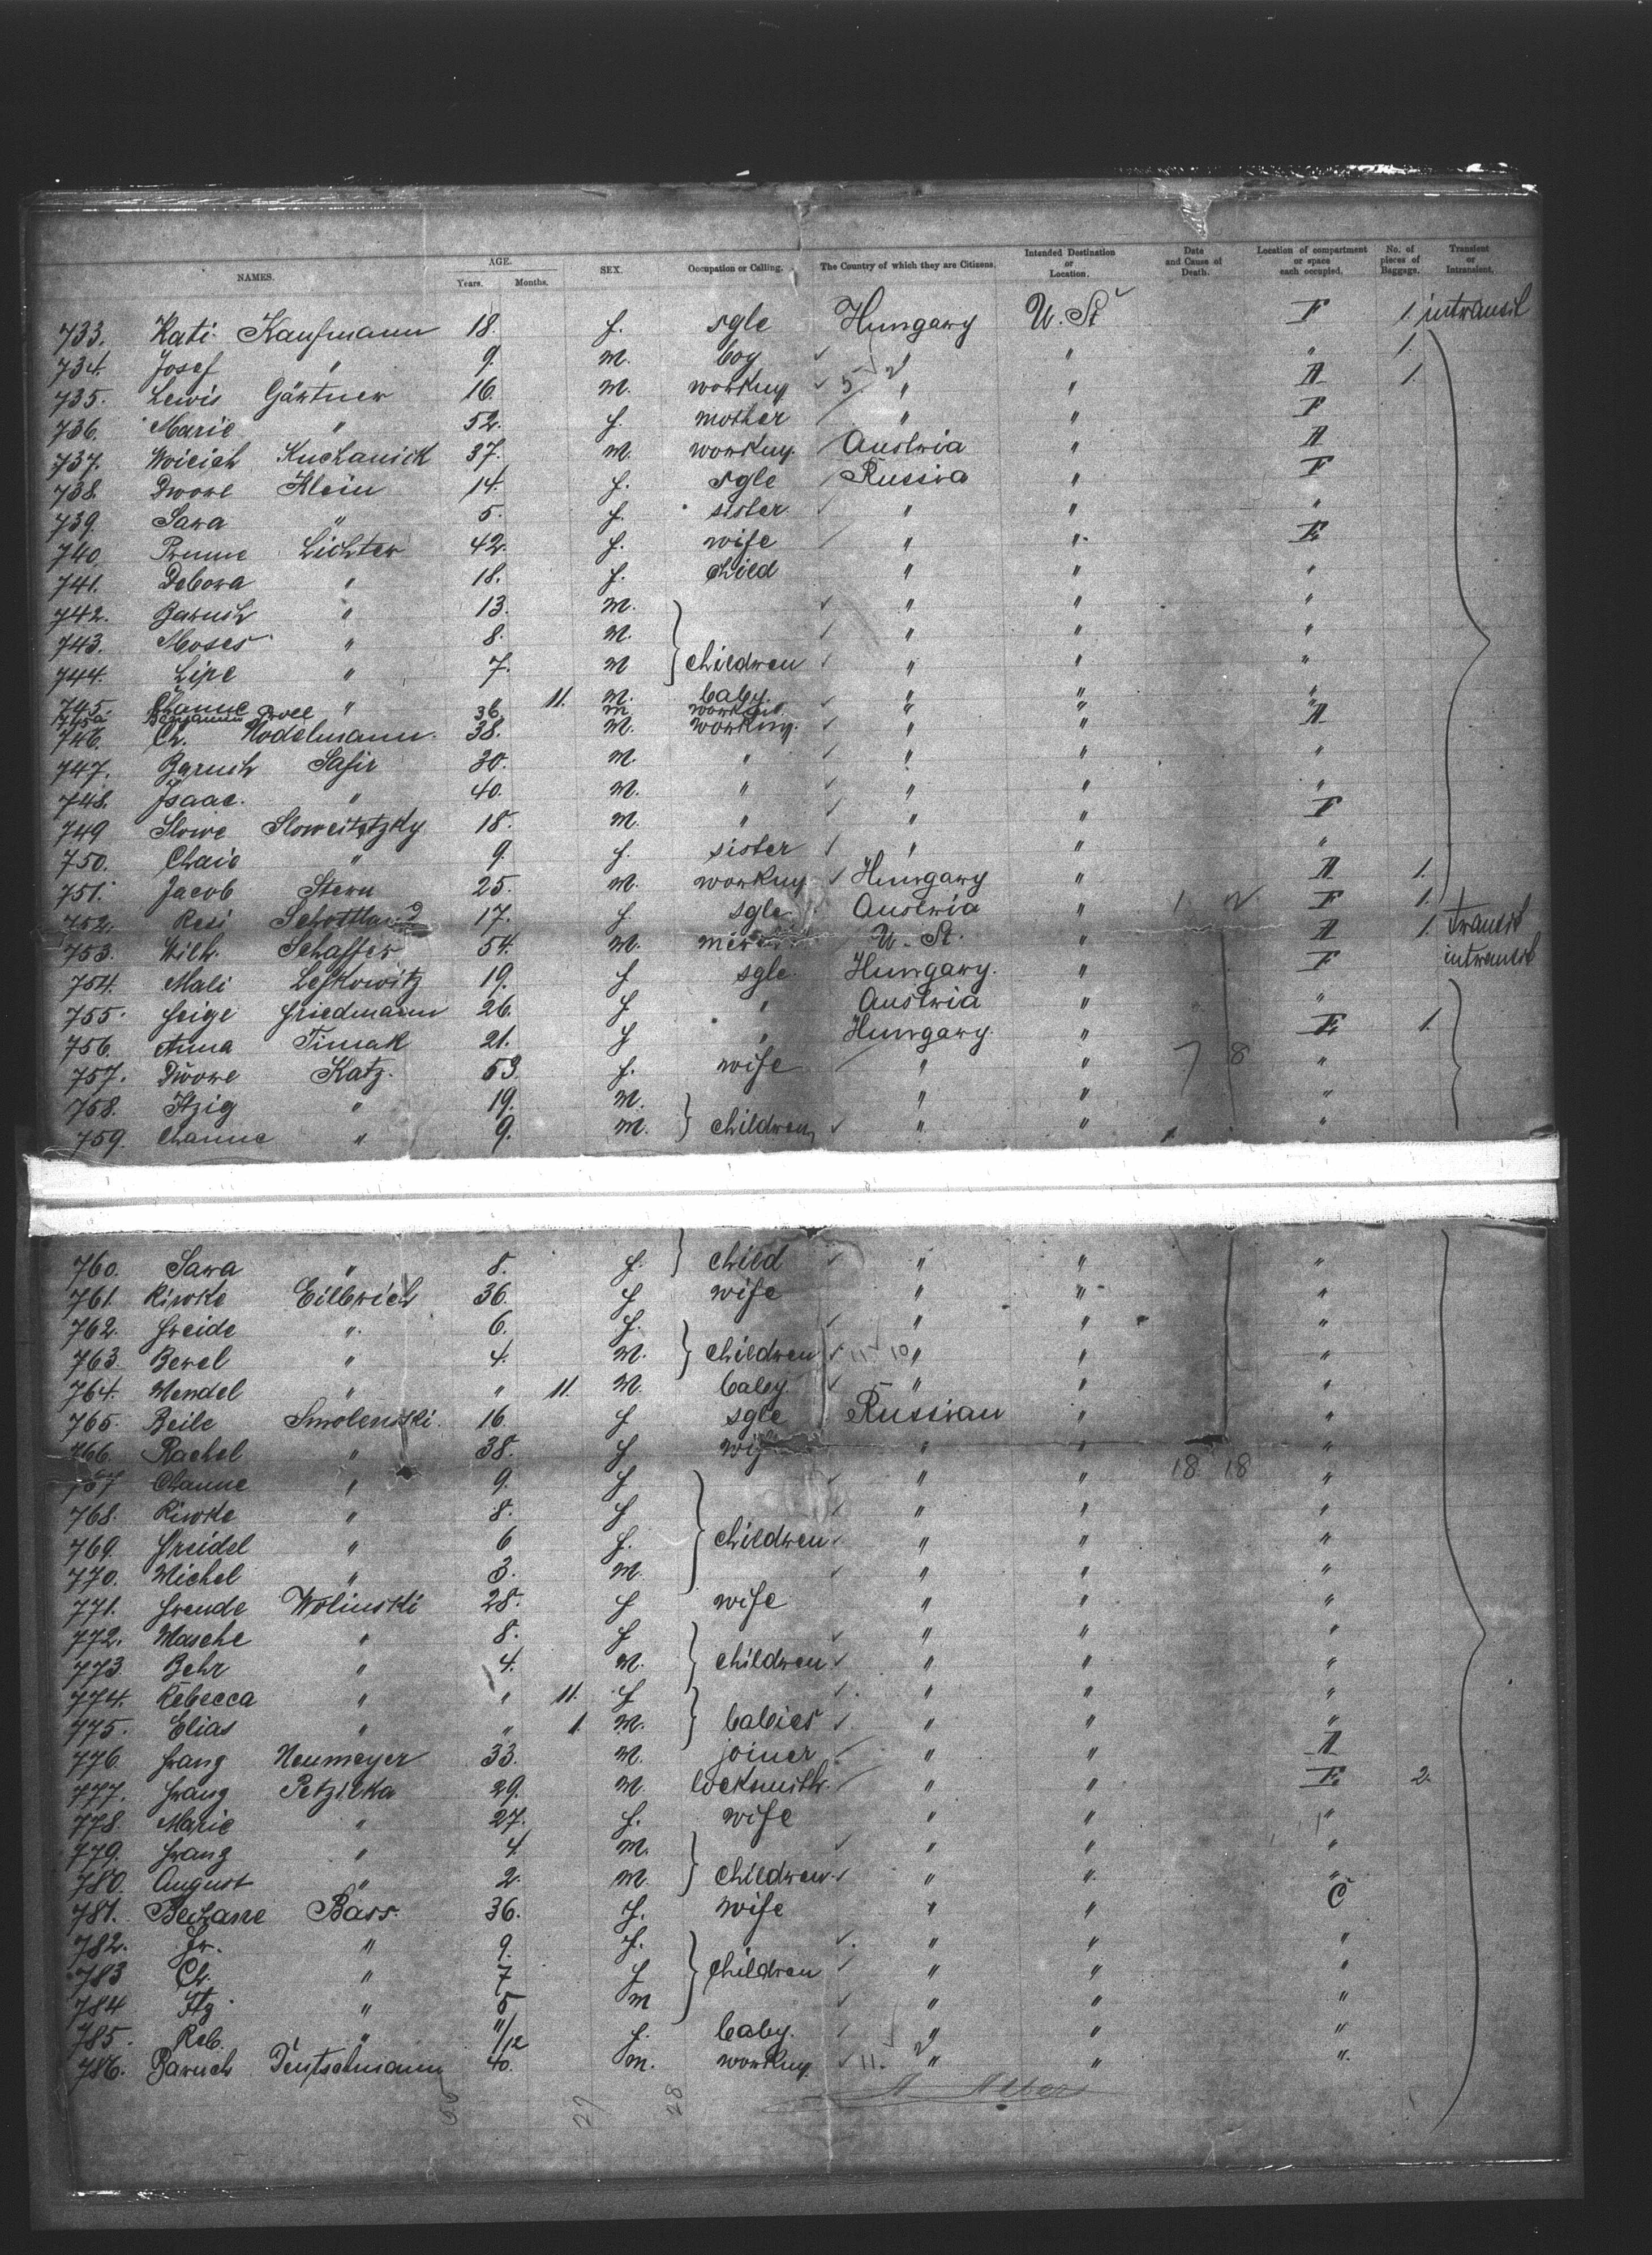 NAMES. AGE. Years. Months. SEX. Occupation or Calling. The Country of which they are Citizens. Intended Destination or Location. Date and Cause of Death. Location of compartment or space each occupied. No. of pieces of Baggage. Transient or Intransient.
733. Kati Kaufmann 18. f. sgle Hungary U. St F 1. intransit
734. Josef " 9. m. boy " " 1.
735. Lewis Gärtner 16. m. workng 5. 2 " " A 1.
736. Marie " 52. f. mother " " F
737. Woicich Kuchanick 37. m. workng. Austria " A
738. Dwore Klein 14. f. sgle Russia " F
739. Sara " 5. f. sister " " "
740. Lichter 42. f. wife " " E
741. Debora " 18. f. child " " "
742. Baruch " 13. m. " " "
743. Moses " 8. m. " " "
744. Lipe " 7. m children " " "
745. Channe " 11. m. baby. " " "
745a Benjamin 36. m workng. " " A
746. Ch. Nodelmann. 38. m. workng. " "
747. Baruch Safir 30. m. " " " "
748. Isaac. " 40. m. " " " "
749 Slowe Sloweitzky 18. m. " " " F
750. Chaie " 9. f. sister " " "
751. Jacob Stern 25. m. workng Hungary " A 1.
752. Resi 17. f. sgle Austria " 1. 2 F 1.
753. Wilh. Schaffer 54. m. U. St. " A 1. transit
754. Mali Lefkowitz 19. f sgle. Hungary. " F intransit
755. Feige Friedmann 26. f " Austria " "
756. Anna Timak 21. f " Hungary. " E 1.
757. Dwore Katz. 53. f. wife " " 7 8 "
758. Itzig " 19. m. " " "
759. Channe " 9. m. children " " "
760. Sara " 8. f. child " " "
761. Riwke Eilbrich 36. f wife " " "
762. Freide " 6. f. " " "
763. Berel " 4. m. children 11. 10 " " "
764. Mendel " " 11. m. baby. " " "
765. Beile Smolenski. 16. f sgle Russian " "
766. Rachel " 38. f wife " " "
767 Channe " 9. f " " 18 18 "
768. Riwke " 8. f " " "
769. Freidel " 6 f. children " " "
770. Michel " 3. m. " " "
771. Freude Wolinski 28. f wife " " "
772. Masche " 8. f " " "
773. Behr " 4. m. children " " "
774. Rebecca " " 11. f " " "
775. Elias " " 1. m. babies " " "
776. Franz Neumeyer 33. m. joiner " " A
777. Franz Petzilka 29. m. locksmith. " " E 2.
778. Marie " 27. f. wife " " "
779. Franz " 4 m. " " "
780. August " 2. m. children. " " "
781. Bass. 36. f. wife " " C
782. Fr. " 9. f. " " "
783 Ch. " 7 f children " " "
784 Itz. " 5 m " " "
785. Reb. " 11/12 f. baby. " " "
786. Baruch 40. m. workng. 11. 2 " " "
27 28